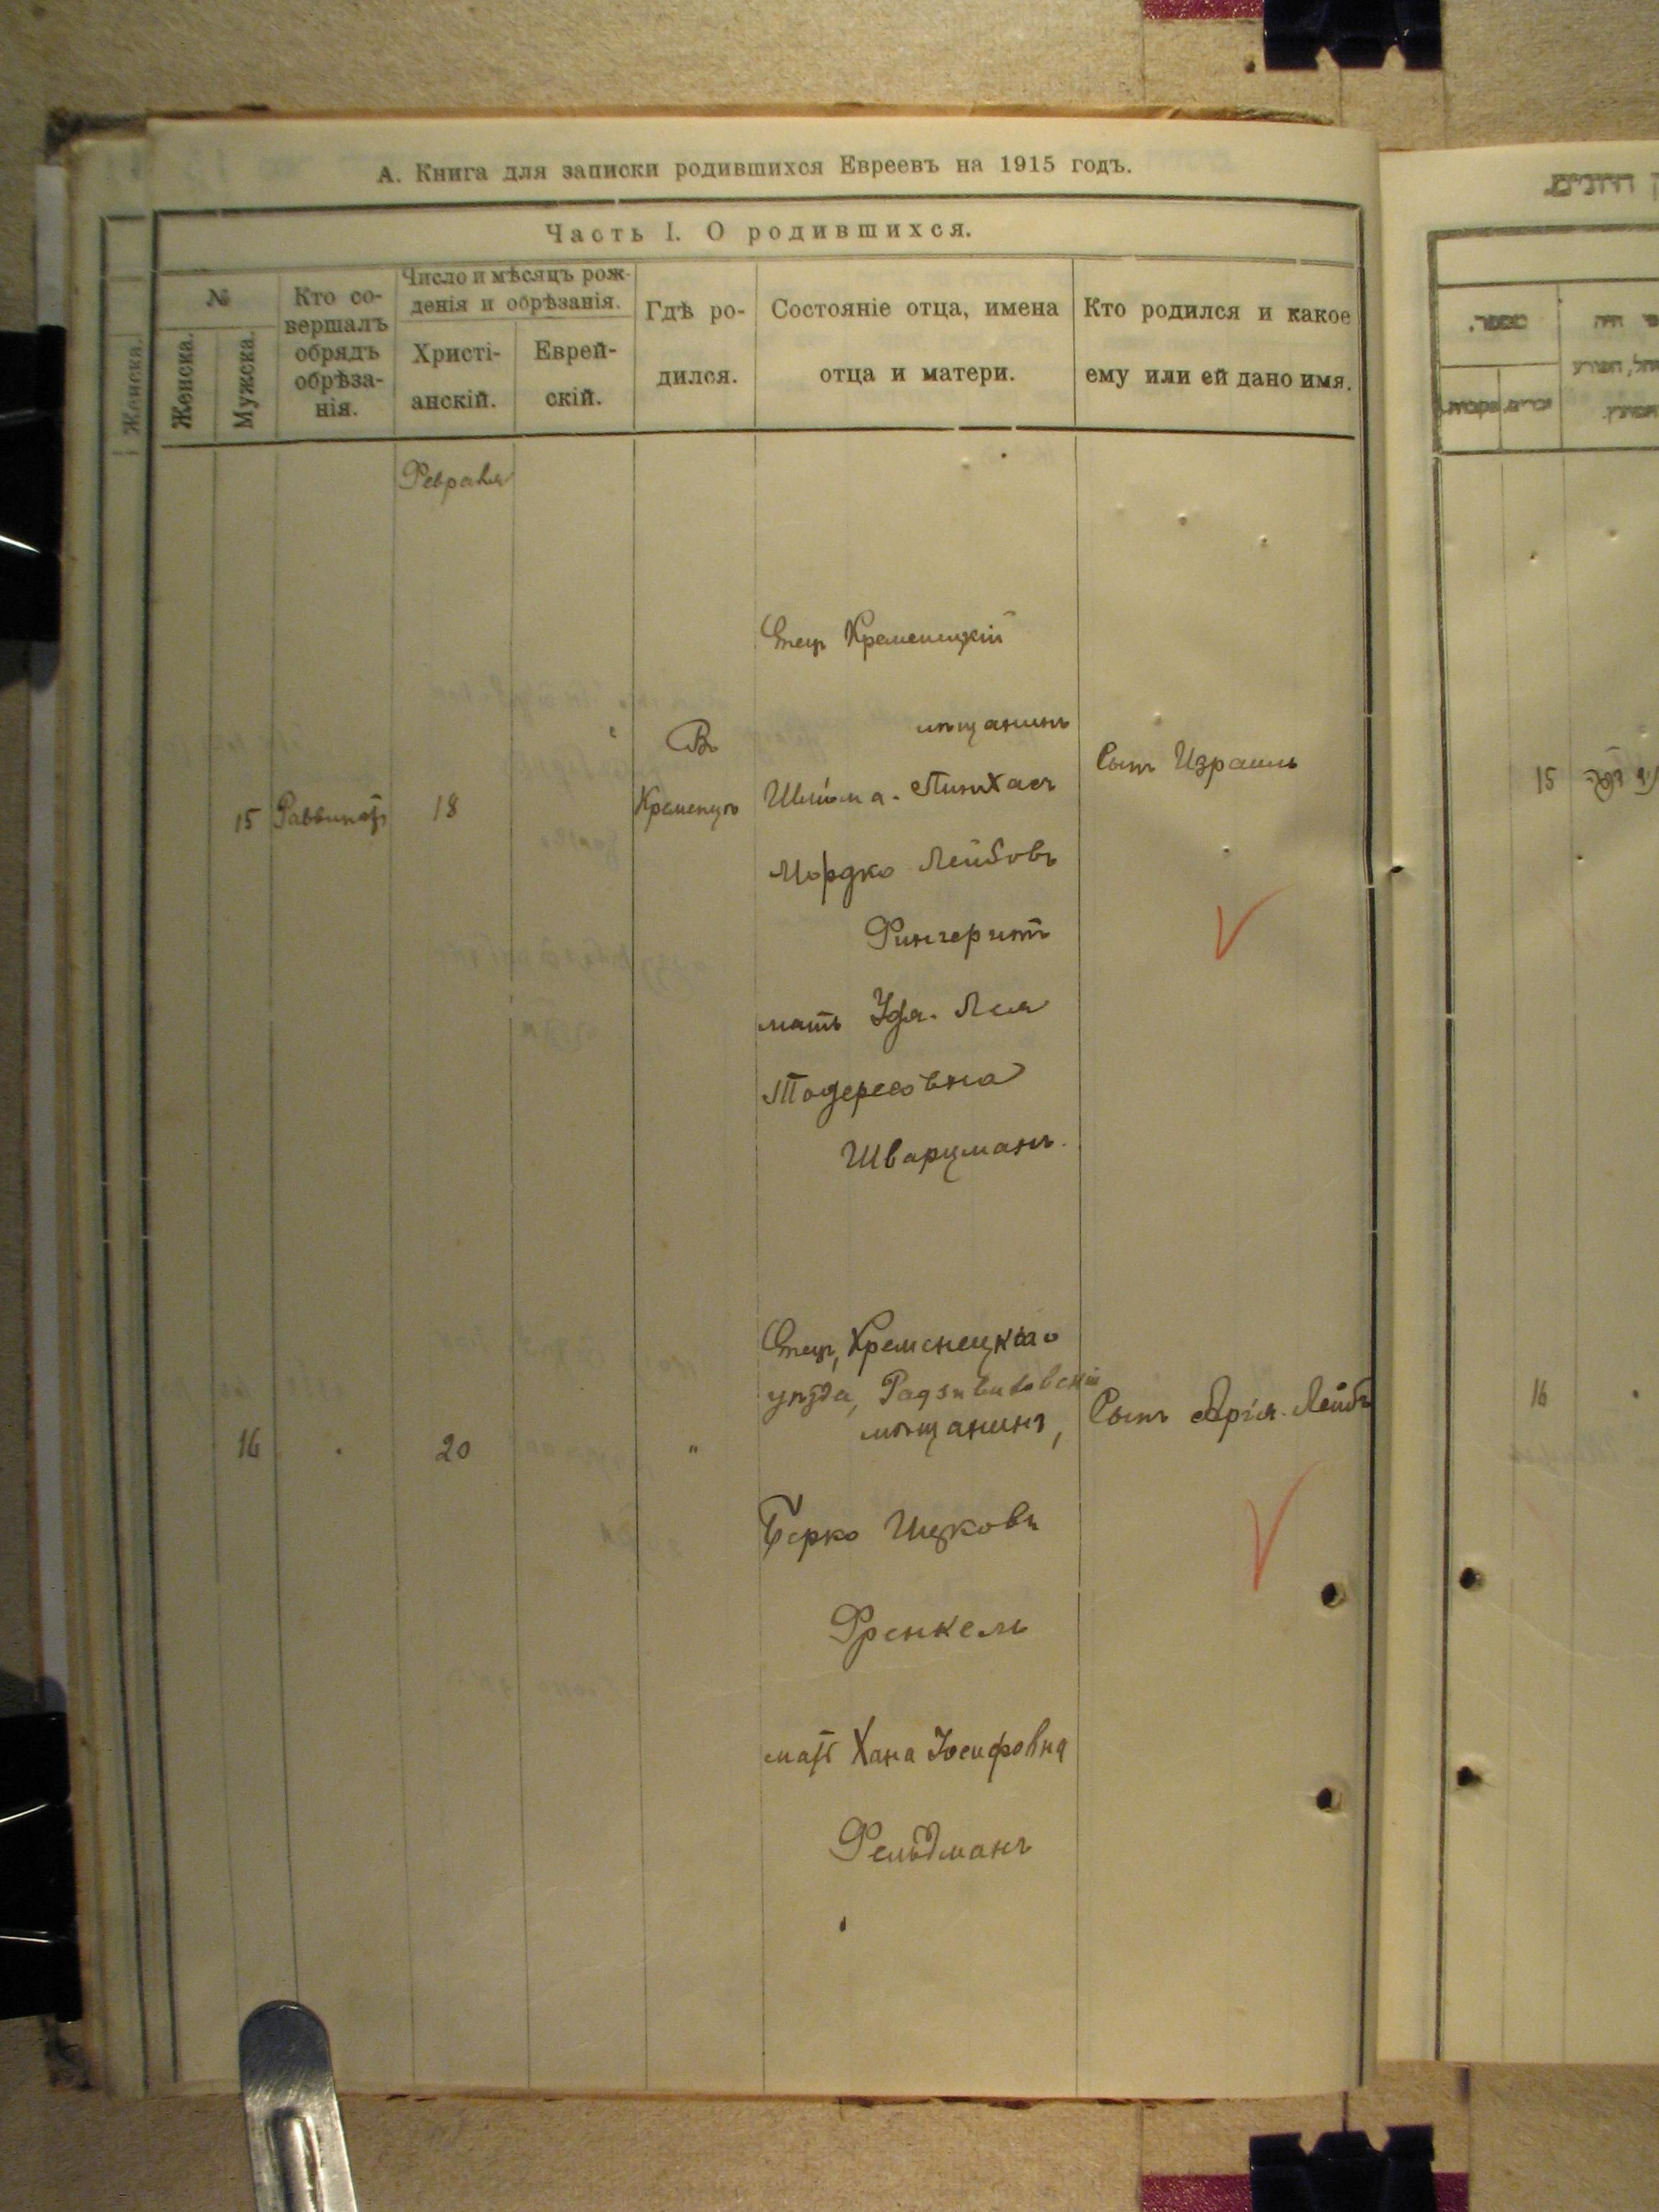 А. Книга для записки родившихся Евреевъ на 1915 годъ.
Часть I. О родившихся.
№
Женска.
Женска.
Мужска.
Кто со-
вершалъ
обрядъ
обрѣза-
нія.
Число и мѣсяцъ рож-
денія и обрѣзанія.
Христі-
анскій.
Еврей-
скій.
Гдѣ ро-
дился.
Состояніе отца, имена
отца и матери.
Кто родился и какое
ему или ей дано имя.
Февраля
15
18
Въ
Кременцѣ
Отецъ Кременецкій
мѣщанинъ
Шлома-Пинхасъ
Мордко Лейбовъ
Фингерить
мать Удя-Лея
Тодересовна
Шварцманъ.
Сынъ Израиль
16
20
"
Отецъ, Кременецкаго
уѣзда, Радзивиловскій
мѣщанинъ,
Берко Ицковъ
Френкель
мать Хана Іосифовна
Фельдманъ
Сынъ Арія-Лейбъ
15
16